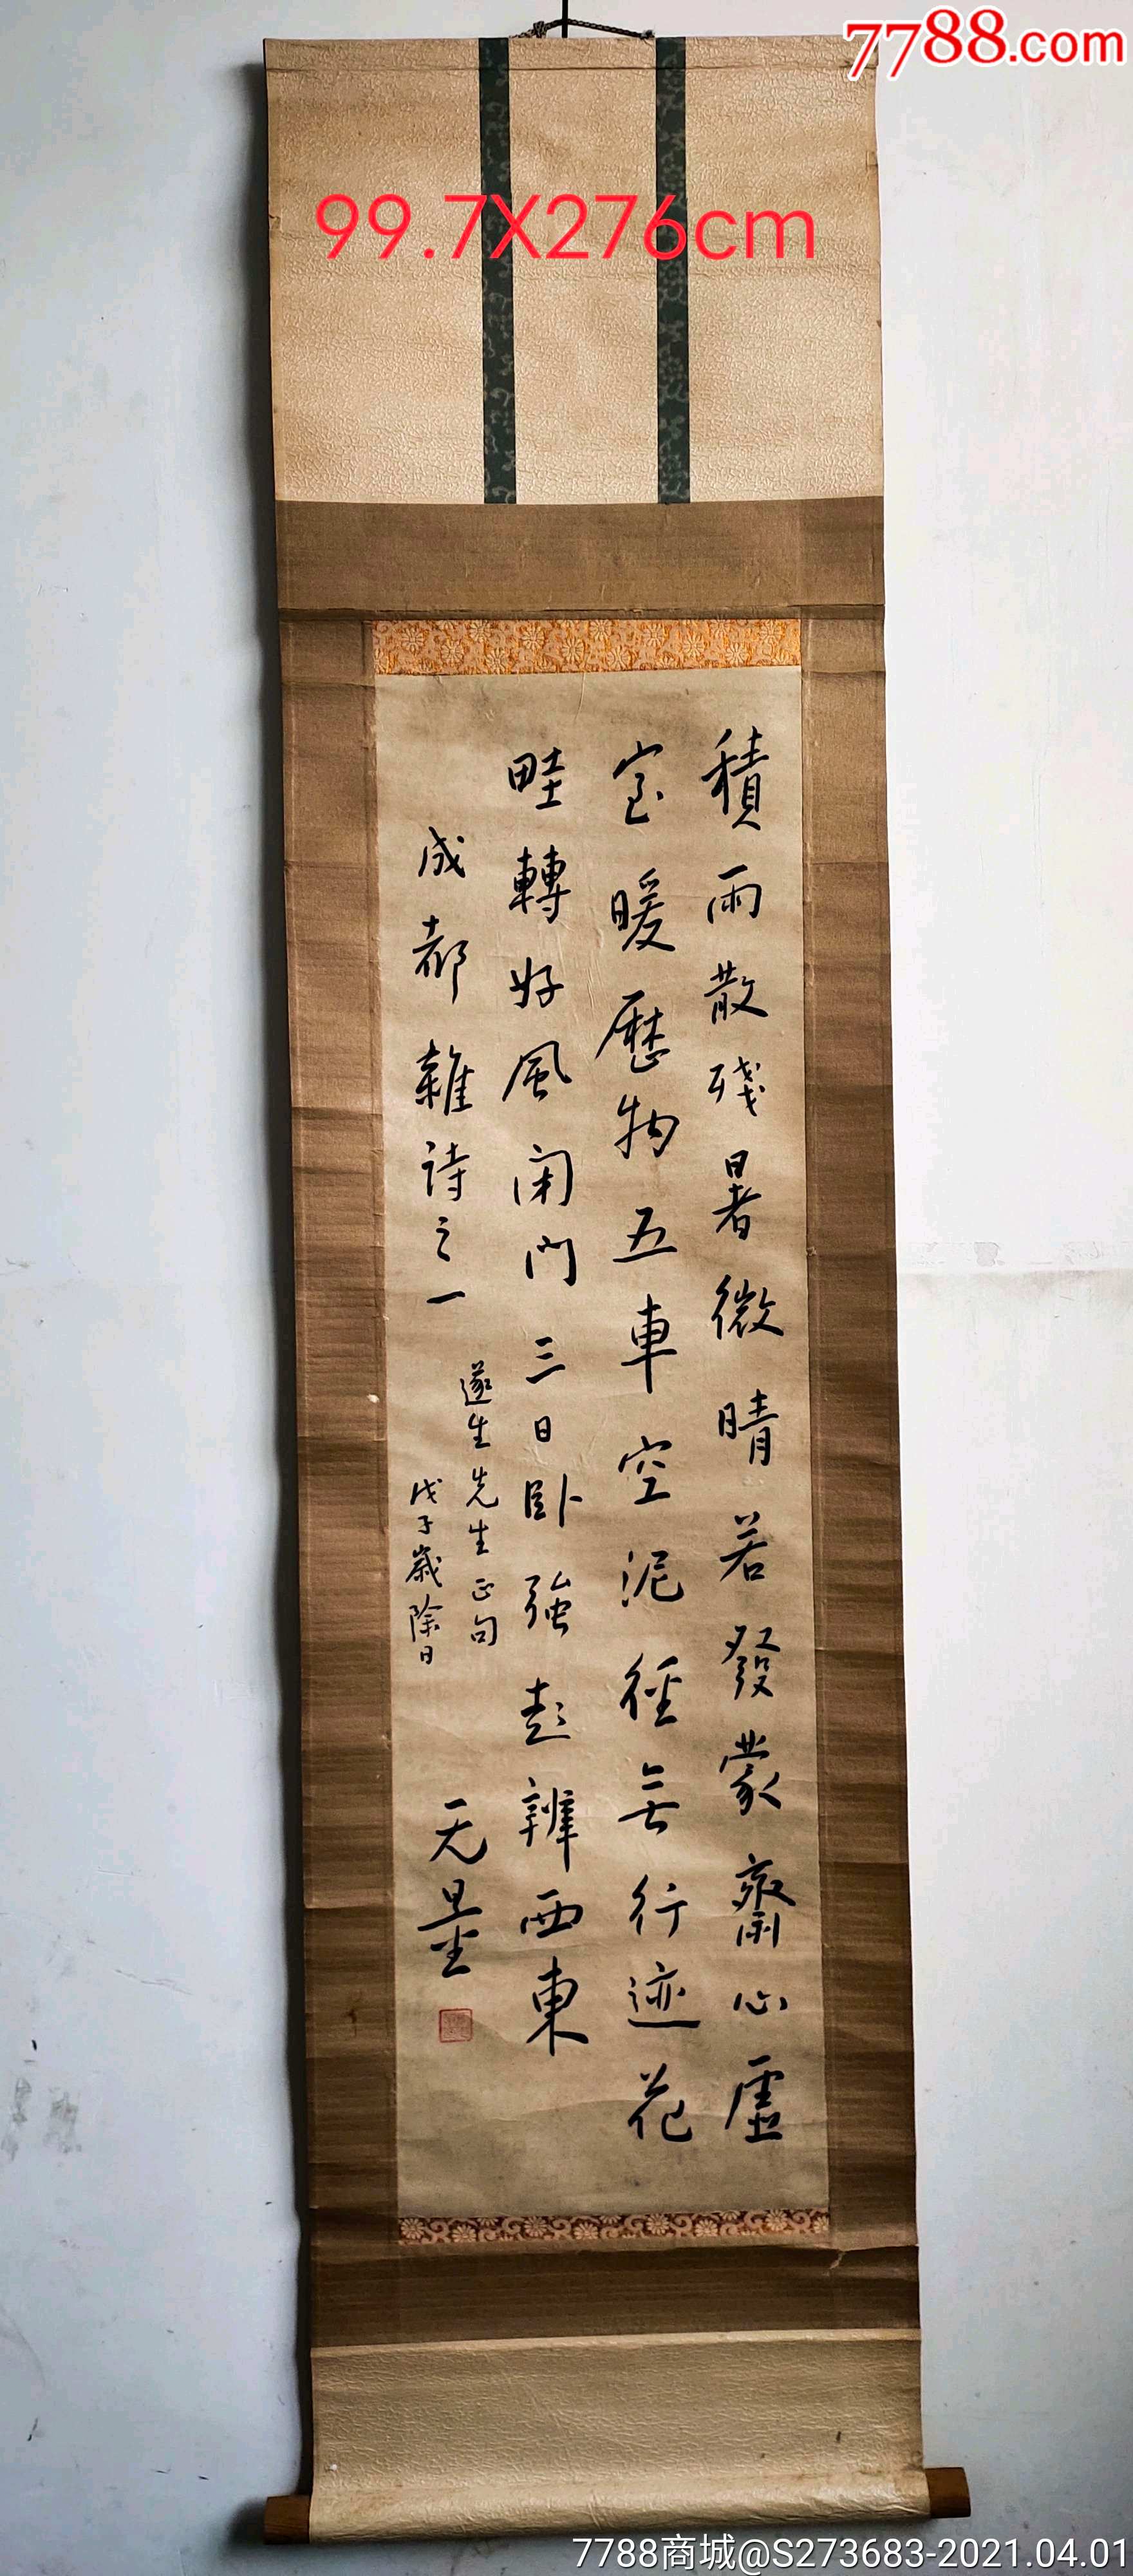 7788.com
99.7X276cm
積雨散殘暑微晴若發蒙齋心虛
室暖歷物五車空泥徑無行迹花
畦轉好風閑門三日卧強起辨西東
成都雜詩之一
遂生先生正句
戊子歲除日
无量
7788商城@S273683-2021.04.01